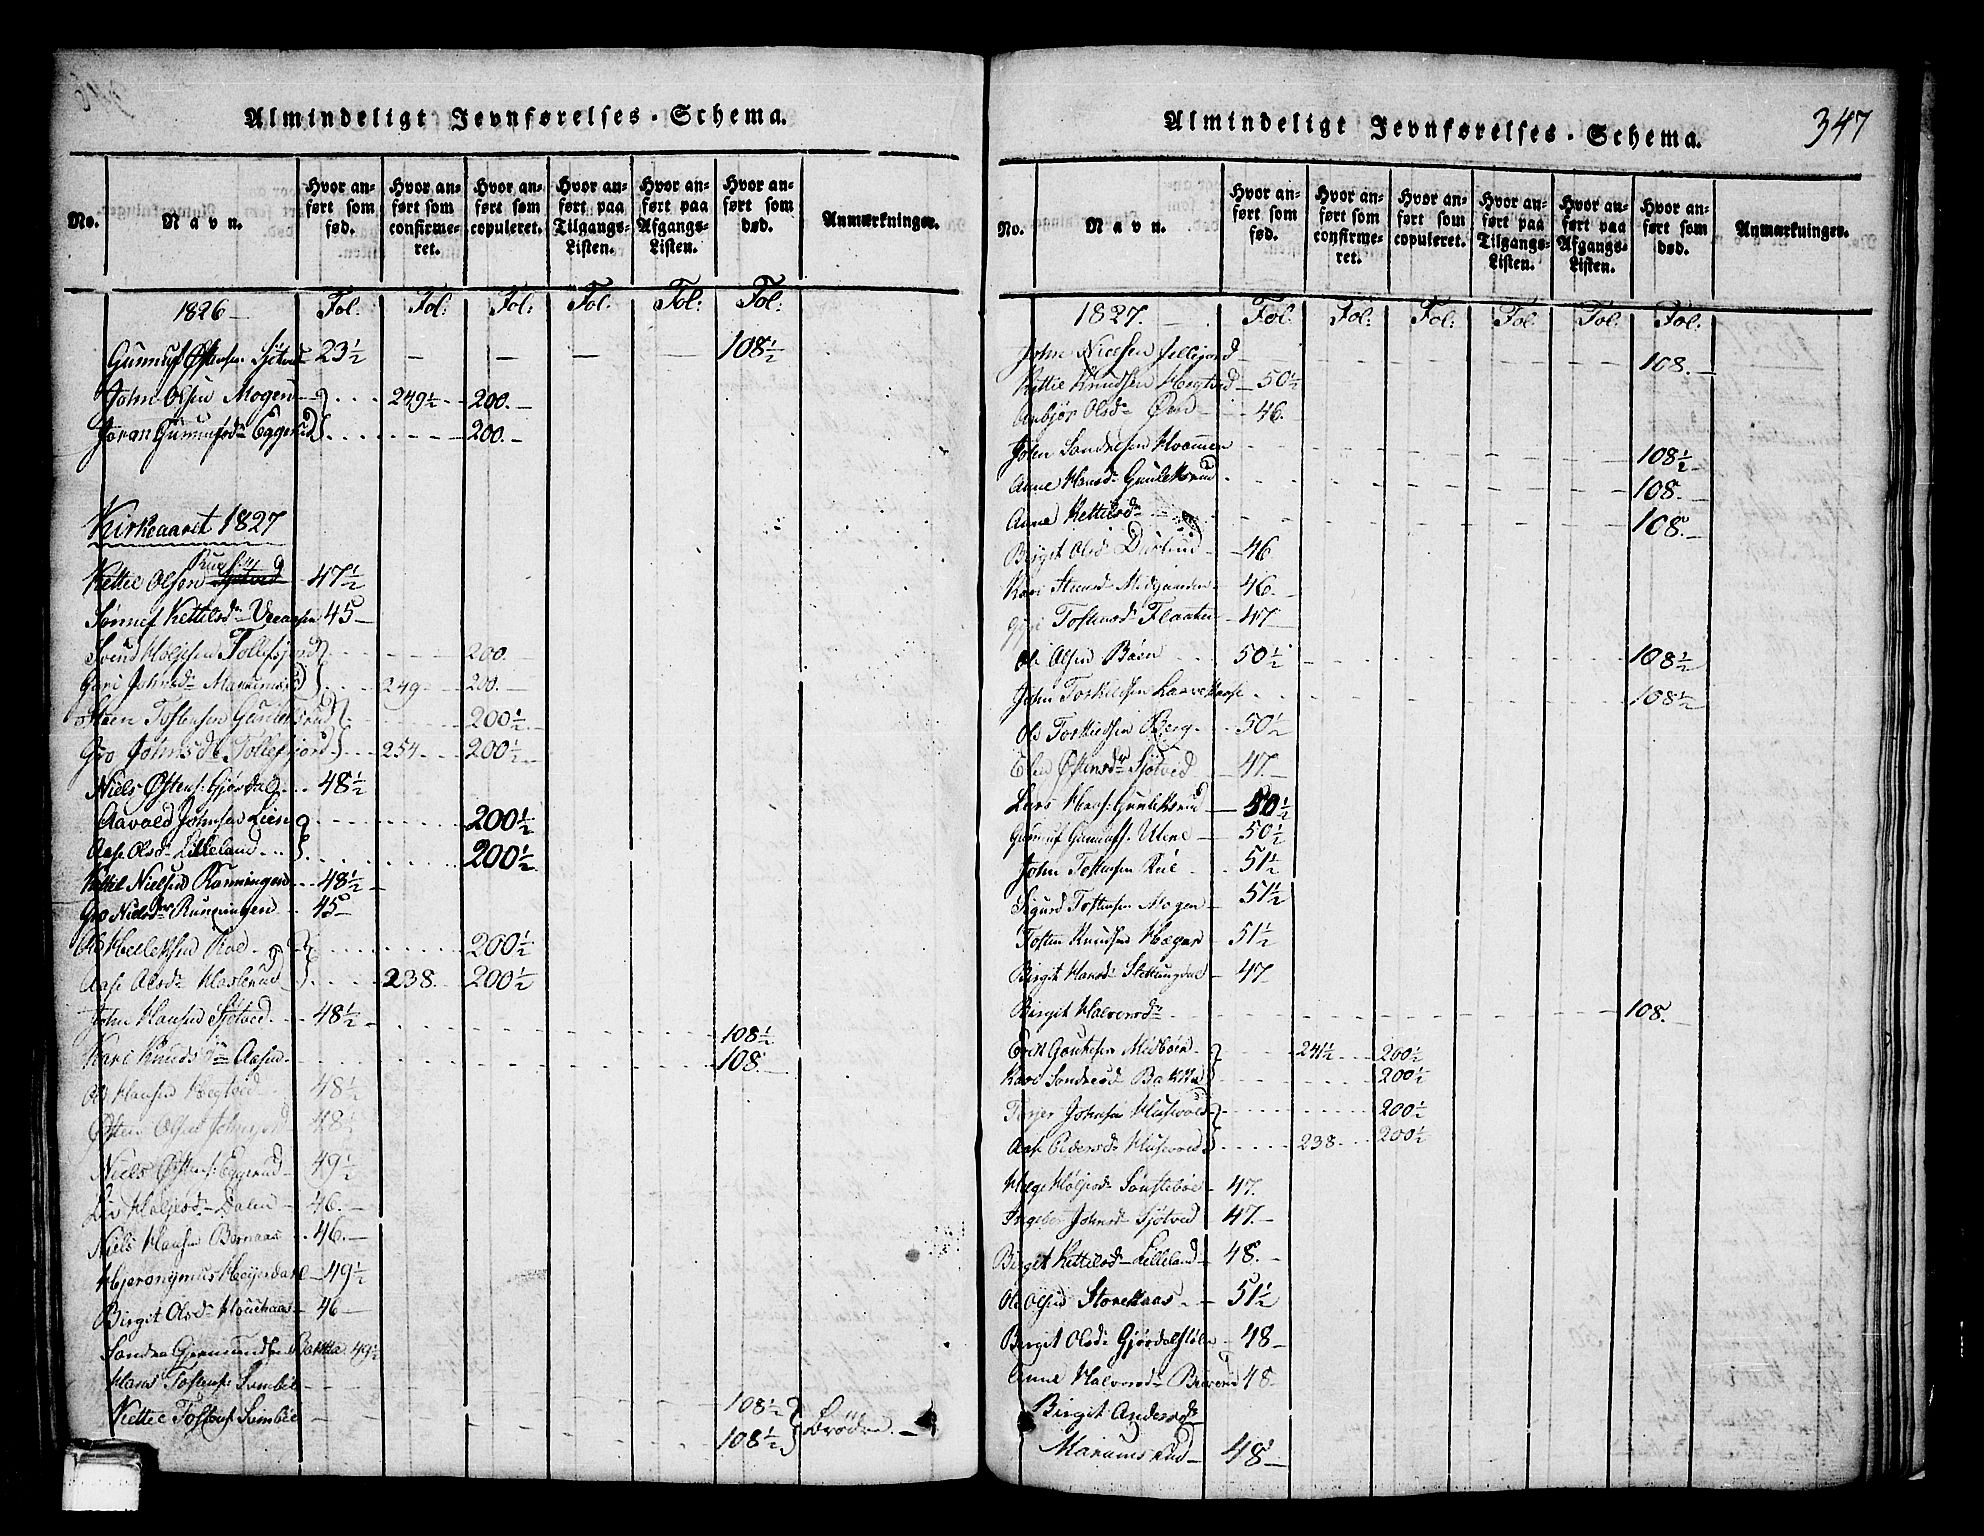 Almindeligt Jevnførelses-Schema.
No. Navn. Hvor anført som fød. Hvor anført som confirmeret. Hvor anført som copuleret. Hvor anført paa Tilgangs-Listen. Hvor anført paa Afgangs-Listen. Hvor anført som død. Anmærkninger.
1826 Fol. Fol: Fol: Fol: Fol: Fol:
Gunnuf Østens: Sjötved 23½ — — — — 108½
John Olsen Mogen 249½ 200.
Joran Gunnufsdr Eggerud 200.
Kirkeaaret 1827
Kettil Olsen 47½
Sønnef Kettilsdr 45
Svend Holjesen Tollefsjord 200.
Gori Johnsdr 249 200.
Steen Tostensen Gunleksrud 200½
Gro Johnsdr Tollefsjord 254 200½
Niels Østens: Gjørdal 48½
Aavald Johnsen Lien 200½
Aase Olsdr Lilleland 200½
Kittil Nielsen Rønningen 48½
Gro Nielsdr Rønningen 45
Ole Helleksen Roe 200½
Aase Olsdr Haslerud 238. 200½
John Hansen Sjötved 48½ 108½
Kari Knudsdr Aasen 108
Ole Hansen Hegtvid 48½
Østen Olsen 48½
Niels Østens: Eggerud 49½
Liv Holjesdr Dalen 46.
Niels Hansen Bernaas 46.
Hjeronymus Heyerdahl 49½
Birgit Olsdr 46
Sondre Gjermundsen Bakka 49½
Hans Tostens: Simble 108½
Kettil Tostens: Simble 108½ Brödre.
Almindeligt Jevnførelses-Schema. 347
No. Navn. Hvor anført som fød. Hvor anført som confirmeret. Hvor anført som copuleret. Hvor anført paa Tilgangs-Listen. Hvor anført paa Afgangs-Listen. Hvor anført som død. Anmærkninger.
1827. Fol. Fol: Fol: Fol. Fol: Fol.
John Nielsen 108.
Kittil Knudsen Hegtvid 50½
Anbjør Olsdr 46.
John Sondresen Hvammen 108½
Anne Hansdr Gunleksrud 108.
Anne Kettilsdr 108
Birgit Olsdr 46
Kari Steensdr Midgaarden 46.
Gori Tostensdr Flaaten 47
Ole Olsen Bøen 50½ 108½
John Torkildsen 108½
Ole Torkildsen Berg 50½
Østensdr Sjötved 47.
Lars Hans: Gunleksrud 50½
Gunnuf Gunnufs: Utene 50½
John Tostensen 51½
Sigurd Tostensen Mogen 51½
Tosten Knudsen 51½
Birgit Hansdr 47
Birgit Halvorsdr 108.
Erik Gautesen Midbøen 241½ 200½
Kari Sondresdr Bakka 200½
Torjer Johnsen Husevold 200½
Aase Pedersdr 238 200½
Helge Holjesdr Sønstebøe 47.
Ingebor Johnsdr Sjötved 47.
Birgit Kettilsdr Lilleland 48.
Ole Olsen Storekaas 51½
Birgit Olsdr 48
Anne Halvorsdr 48
Birgit Andersdr
48